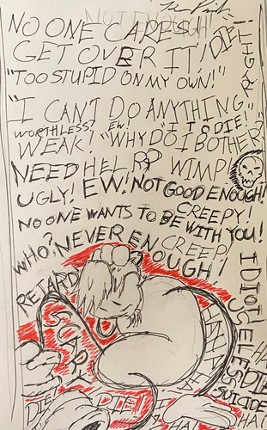 NOT ENOUGH!
NO ONE CARES!
GET OVER IT!
DIE!
"TOO STUPID ON MY OWN!"
"I CAN'T DO ANYTHING!
WORTHLESS! EW! "IT'S DIE!
WEAK! "WHY DO I BOTHER
NEED HELP WIMP!
UGLY! EW! NOT GOOD ENOUGH!
CREEPY!
NO ONE WANTS TO BE WITH YOU!
WHO? NEVER ENOUGH!
CREEP
RETARD
SCARS
IDIOT
DIE!
DIE!
DIE
SUICIDE
HA!
HA!